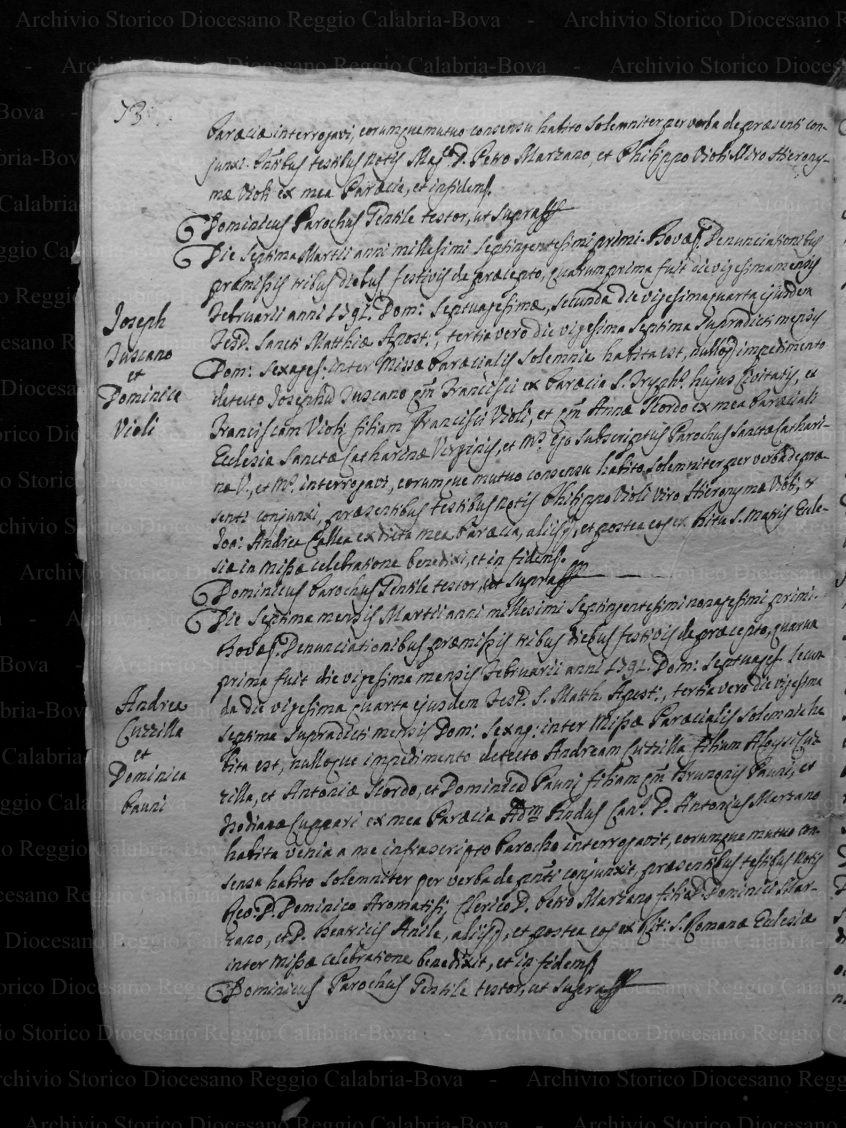 73
Paræciæ interrogavi, eorumque mutuo consensu habito solemniter per verba de præsenti con-
junxi. Pntibus testibus notis D. Petro Marzano, et Philippo Violi Viro Hierony-
mæ Violi ex mea Paræcia, et in fidem
Dominicus Parochus Gentile testor, ut supra
Die septima Martii anni millesimi septingentesimi primi. Bovæ. Denunciationibus
præmissis tribus diebus festivis de præcepto, quarum prima fuit die vigesima mensis
Februarii anni 1791. Dom: Septuagesimæ, secunda die vigesima quarta ejusdem
Fest. Sancti Matthiæ Apost:, tertia vero die vigesima septima supradicti mensis
Dom: Sexages. inter Missæ Paræcialis solemnia habita est, nulloq impedimento
detecto Josephū Tuscano qm Francisci ex Paræcia S. Tryph. hujus Civitatis, et
Franciscam Violi filiam Francisci Violi, et qm Annæ Scordo ex mea Paræciali
Ecclesia Sanctæ Catharinæ Virginis, et M. Ego subscriptus Parochus Sanctæ Cathari-
næ V., et M. interrogavi, eorumque mutuo consensu habito solemniter per verba de præ-
senti conjunxi, præsentibus testibus notis Philippo Violi viro Hieronymæ Violi, &
Joa: Andrea Callea ex dicta mea Paræcia, aliisq, et postea eos ex Ritu S. Matris Eccle-
siæ in Missæ celebratione benedixi, et in fidem
Dominicus Parochus Gentile testor, ut supra
Die septima mensis Martii anni millesimi septingentesimi nonagesimi primi.
Bovæ. Denunciationibus præmissis tribus diebus festivis de præcepto, quarum
prima fuit die vigesima mensis Februarii anni 1791. Dom: Septuages. secun-
da die vigesima quarta ejusdem Fest. S. Matth. Apost:, tertia vero die vigesima
septima supradicti mensis Dom: Sexag: inter Missæ Paræcialis solemnia ha
bita est, nulloque impedimento detecto Andream Cuzzilla filium Aloysi Cuz
zilla, et Antoniæ Scordo, et Dominicā Pauni filiam qm Brunonis Pauni, et
Cuppari ex mea Paræcia Can. D. Antonius Marzano
habita venia a me infrascripto Parocho interrogavit, eorumque mutuo con-
sensu habito solemniter per verba de pnti conjunxit, præsentibus testibus notis
D. Dominico Clerico D. Petro Marzano filio D. Dominici Mar-
zano, et D. aliisq, et postea eos ex Rit: S. Romanæ Ecclesiæ
inter Missæ celebratione benedixit, et in fidem
Dominicus Parochus Gentile testor, ut supra
Joseph
Tuscano
et
Dominice
Violi
Andrea
Cuzzilla
et
Dominica
Pauni
Archivio Storico Diocesano Reggio Calabria-Bova